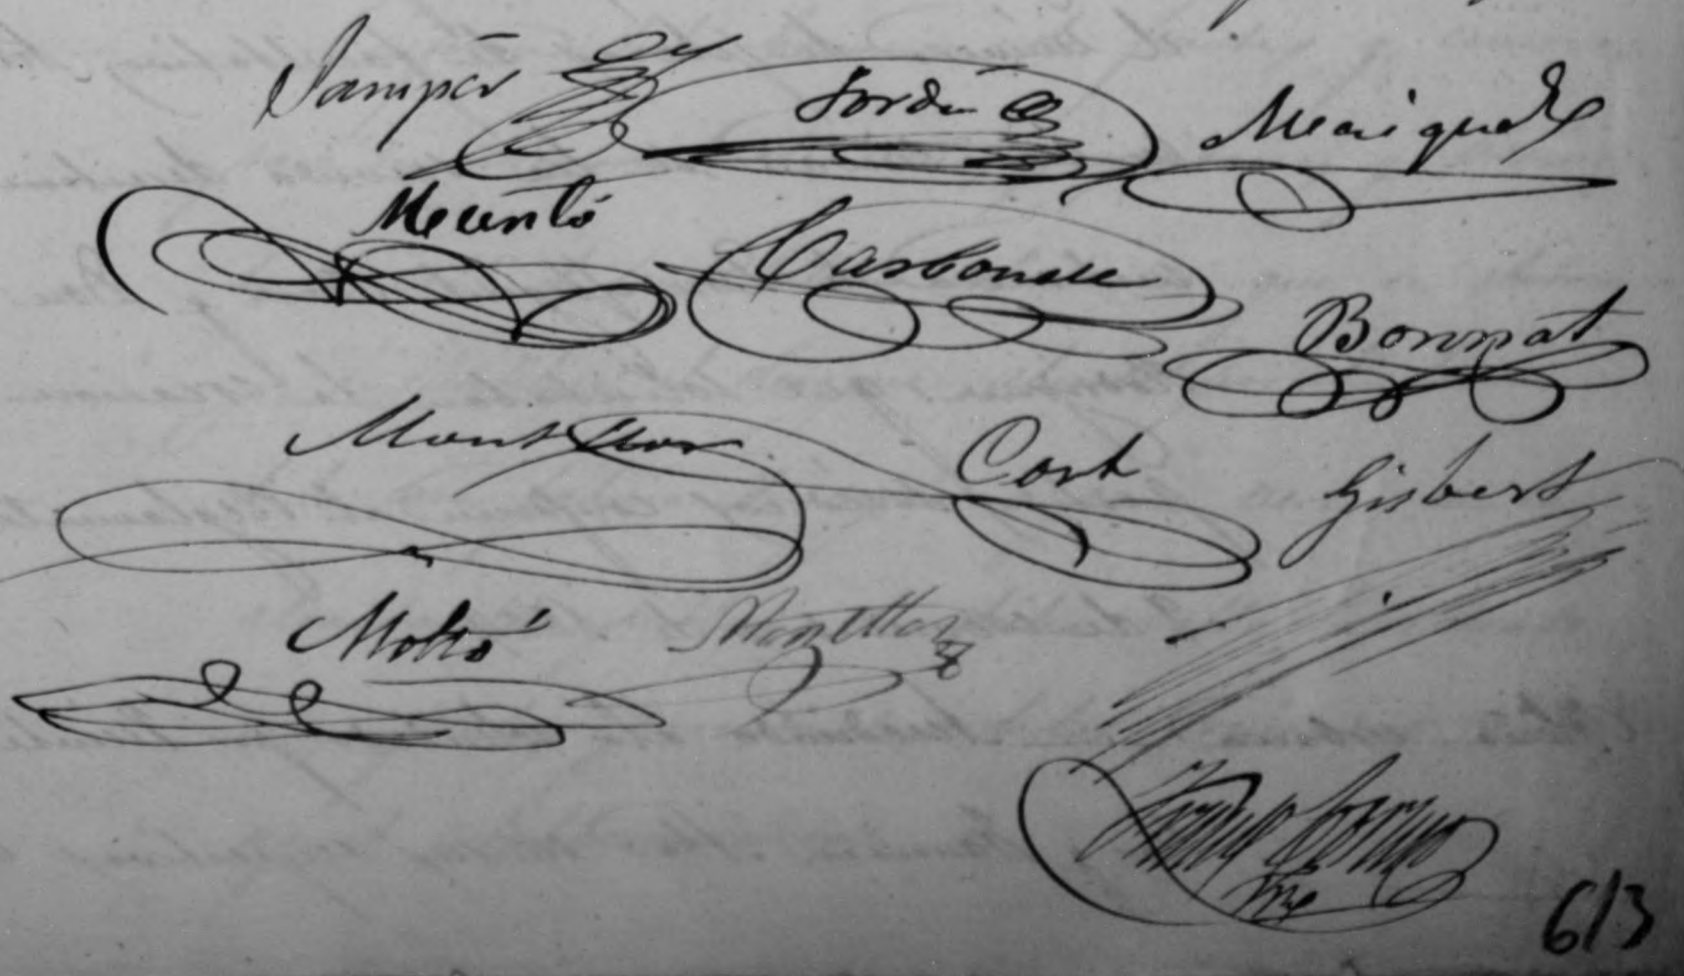 Samper Jordá Meriguel
Merintó Carbonell
Bonnat
Montllor Cort Gisbert
Moltó Montllor
613